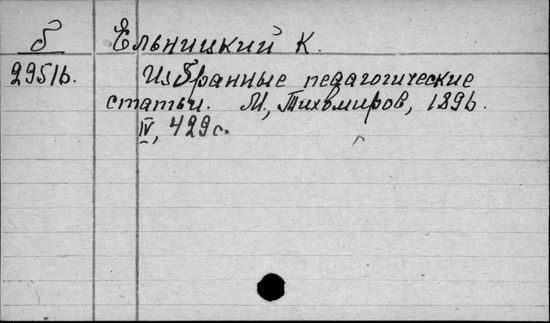 б Ельницкий К.
2951б. Избранные педагогические
статьи. М, Тихомиров, 1896.
IV, 429с.